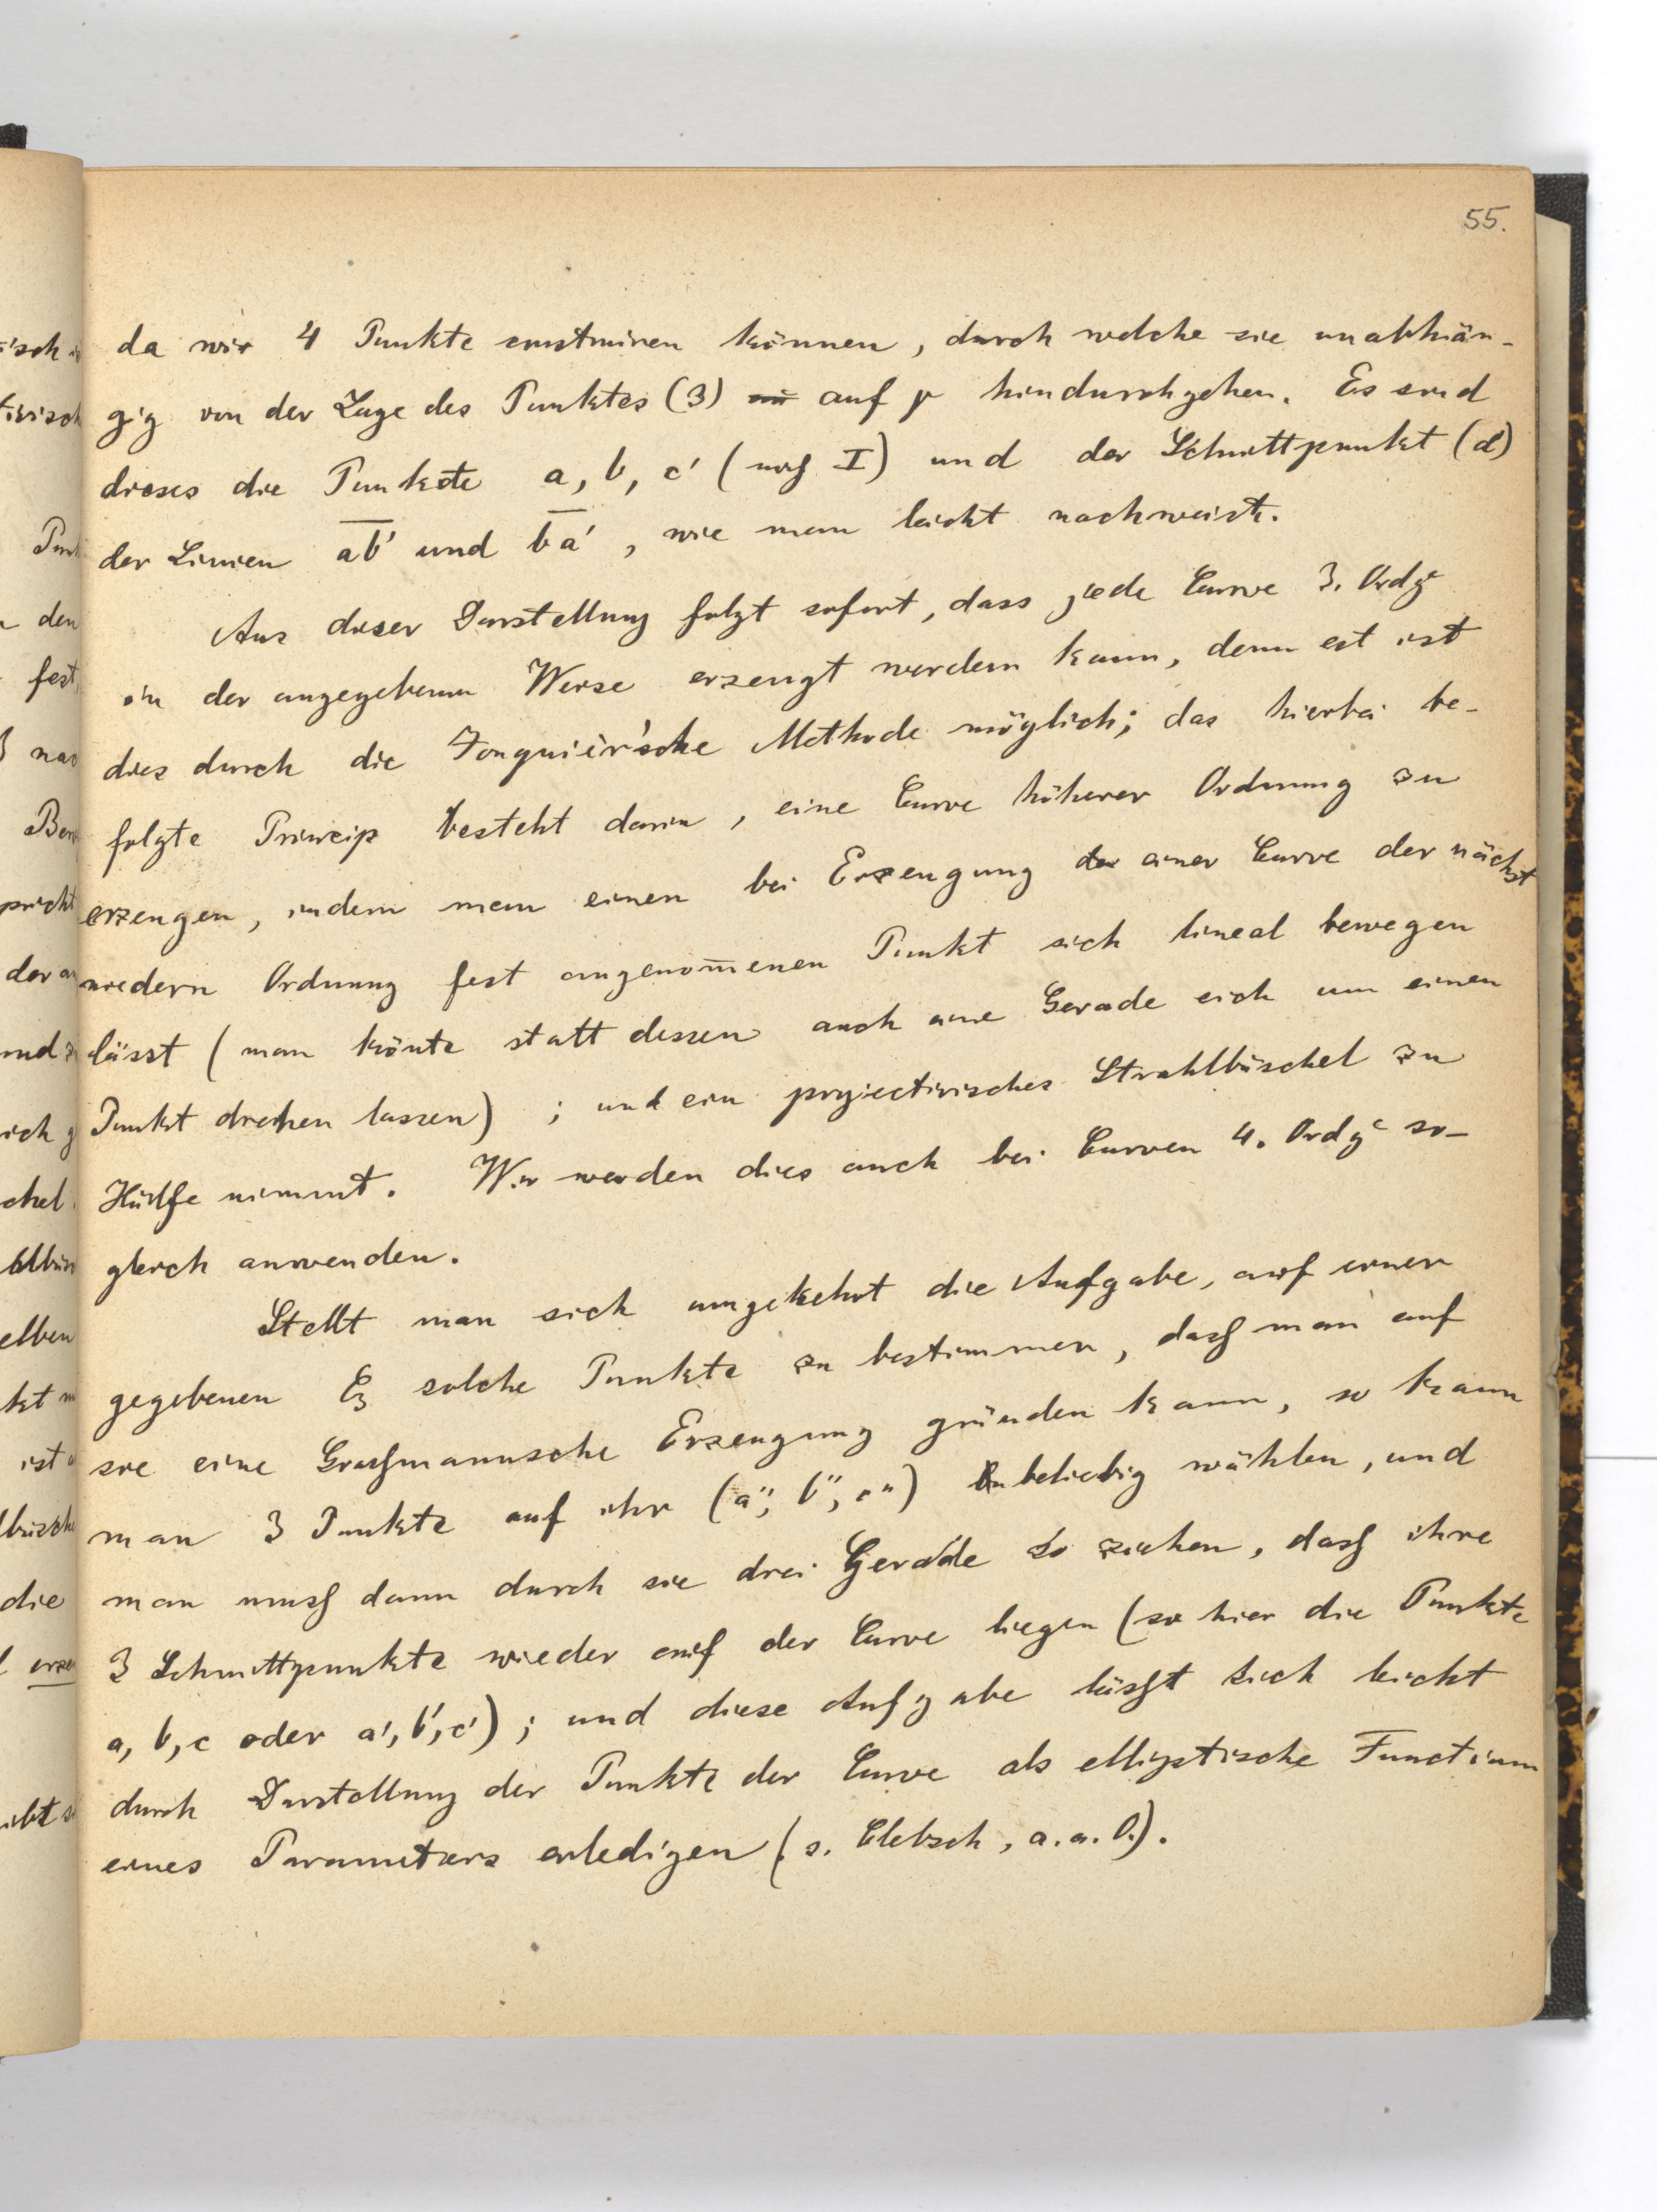 55.
da wir 4 Punkte construiren können, durch welche sie unabhän-
gig von der Lage des Punktes (3) auf p hindurchgehen. Es sind
dieses die Punkte a, b, c' ( I) und der Schnittpunkt (d)
der Linien ab' und ba', wie man leicht nachweist.
Aus dieser Darstellung folgt sofort, dass jede Curve 3. Ordg
in der angegebenen Weise erzeugt werden kann, denn est ist
dies durch die Jonquièr'sche Methode möglich; das hierbei be-
folgte Princip besteht darin, eine Curve höherer Ordnung zu
erzeugen, indem man einen bei Erzeugung einer Curve der nächst
niedern Ordnung fest angenom̅enen Punkt sich lineal bewegen
lässt (man kön̅te statt dessen auch eine Gerade sich um einen
Punkt drehen lassen); und ein projectivisches Strahlbüschel zu
Hülfe nimmt. Wir werden dies auch bei Curven 4. Ordg so-
gleich anwenden.
Stellt man sich umgekehrt die Aufgabe, auf einer
gegebenen C₃ solche Punkte zu bestimmen, daß man auf
sie eine Graßmannsche Erzeugung gründen kann, so kann
man 3 Punkte auf ihr (a'', b'', c'') beliebig wählen, und
man muß dann durch sie drei Gerade so ziehen, daß ihre
3 Schnittpunkte wieder auf der Curve liegen (so hier die Punkte
a, b, c oder a', b', c'); und diese Aufgabe läßt sich leicht
durch Darstellung der Punkte der Curve als elliptische Functionen
eines Parameters erledigen (s. Clebsch, a. a. O.).